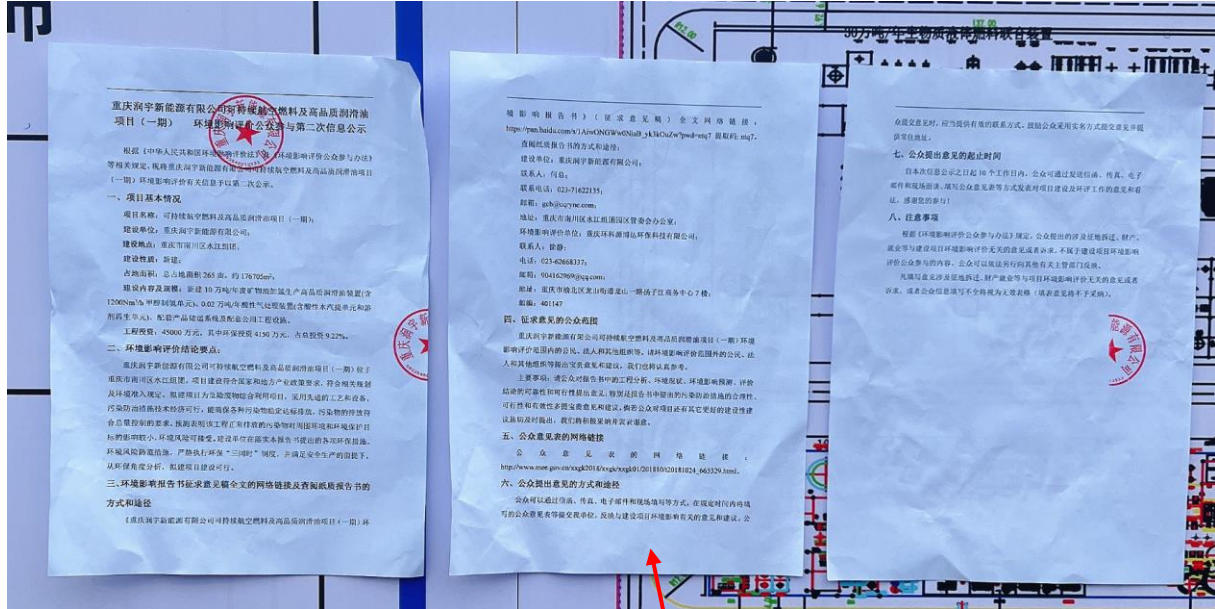 市
重庆润宇新能源有限公司可持续航空燃料及高品质润滑油
项目（一期） 环境影响评价公众参与第二次信息公示
根据《中华人民共和国环境影响评价法》及《环境影响评价公众参与办法》
等相关规定，现将重庆润宇新能源有限公司可持续航空燃料及高品质润滑油项目
（一期）环境影响评价有关信息予以第二次公示。
一、项目基本情况
项目名称：可持续航空燃料及高品质润滑油项目（一期）；
建设单位：重庆润宇新能源有限公司；
建设地点：重庆市南川区水江组团；
建设性质：新建；
占地面积：总占地面积 265 亩，约 176705m²；
建设内容及规模：新建 10 万吨/年废矿物油加氢生产高品质润滑油装置(含
1200Nm³/h 甲醇制氢单元)、0.02 万吨/年酸性气处理装置(含酸性水汽提单元和溶
剂再生单元)，配套产品储运系统及配套公用工程设施。
工程投资：45000 万元，其中环保投资 4150 万元，占总投资 9.22%。
二、环境影响评价结论要点：
重庆润宇新能源有限公司可持续航空燃料及高品质润滑油项目（一期）位于
重庆市南川区水江组团。项目建设符合国家和地方产业政策要求，符合相关规划
及环境准入规定。拟建项目为危险废物综合利用项目，采用先进的工艺和设备，
污染防治措施技术经济可行，能确保各种污染物稳定达标排放，污染物的排放符
合总量控制的要求。预测表明该工程正常排放的污染物对周围环境和环境保护目
标的影响较小，环境风险可接受。建设单位在落实本报告书提出的各项环保措施、
环境风险防范措施，严格执行环保“三同时”制度，并满足安全生产的前提下，
从环保角度分析，拟建项目建设可行。
三、环境影响报告书征求意见稿全文的网络链接及查阅纸质报告书的
方式和途径
《重庆润宇新能源有限公司可持续航空燃料及高品质润滑油项目（一期）环
境影响报告书》（征求意见稿）全文网络链接：
https://pan.baidu.com/s/1AiwONGWw0NiaB_yk3kOuZw?pwd=ntq7 提取码: ntq7。
查阅纸质报告书的方式和途径：
建设单位：重庆润宇新能源有限公司；
联系人：何总；
联系电话：023-71622135；
邮箱：gcb@cqryne.com；
地址：重庆市南川区水江组团园区管委会办公室；
环境影响评价单位：重庆环科源博达环保科技有限公司；
联系人：徐静；
电话：023-62668337；
邮箱：904162969@qq.com；
地址：重庆市渝北区龙山街道龙山一路扬子江商务中心 7 楼；
邮编：401147
四、征求意见的公众范围
重庆润宇新能源有限公司可持续航空燃料及高品质润滑油项目（一期）环境
影响评价范围内的公民、法人和其他组织等。请环境影响评价范围外的公民、法
人和其他组织等提出宝贵意见和建议，我们也将认真参考。
主要事项：请公众对报告书中的工程分析、环境现状、环境影响预测、评价
结论的可靠性和可行性提出意见；特别是报告书中提出的污染防治措施的合理性、
可行性和有效性多提宝贵意见和建议，倘若公众对项目还有其它更好的建设性建
议恳请及时提出，我们将积极采纳并表示谢意。
五、公众意见表的网络链接
公众意见表的网络链接：
http://www.mee.gov.cn/xxgk2018/xxgk/xxgk01/201810/t20181024_665329.html。
六、公众提出意见的方式和途径
公众可以通过信函、传真、电子邮件和现场填写等方式，在规定时间内将填
写的公众意见表等提交我单位，反映与建设项目环境影响有关的意见和建议。公
众提交意见时，应当提供有效的联系方式。鼓励公众采用实名方式提交意见并提
供常住地址。
七、公众提出意见的起止时间
自本次信息公示之日起 10 个工作日内，公众可通过发送信函、传真、电子
邮件和现场面谈、填写公众意见表等方式发表对项目建设及环评工作的意见和看
法，感谢您的参与！
八、注意事项
根据《环境影响评价公众参与办法》规定，公众提出的涉及征地拆迁、财产、
就业等与建设项目环境影响评价无关的意见或者诉求，不属于建设项目环境影响
评价公众参与的内容，公众可以依法另行向其他有关主管部门反映。
凡填写意见涉及征地拆迁、财产就业等与项目环境影响评价无关的意见或者
诉求，或者公众信息填写不全将视为无效表格（填表意见将不予采纳）。
30万吨/年生物质液体燃料联合装置
137.00
R12.00
能源有限公司